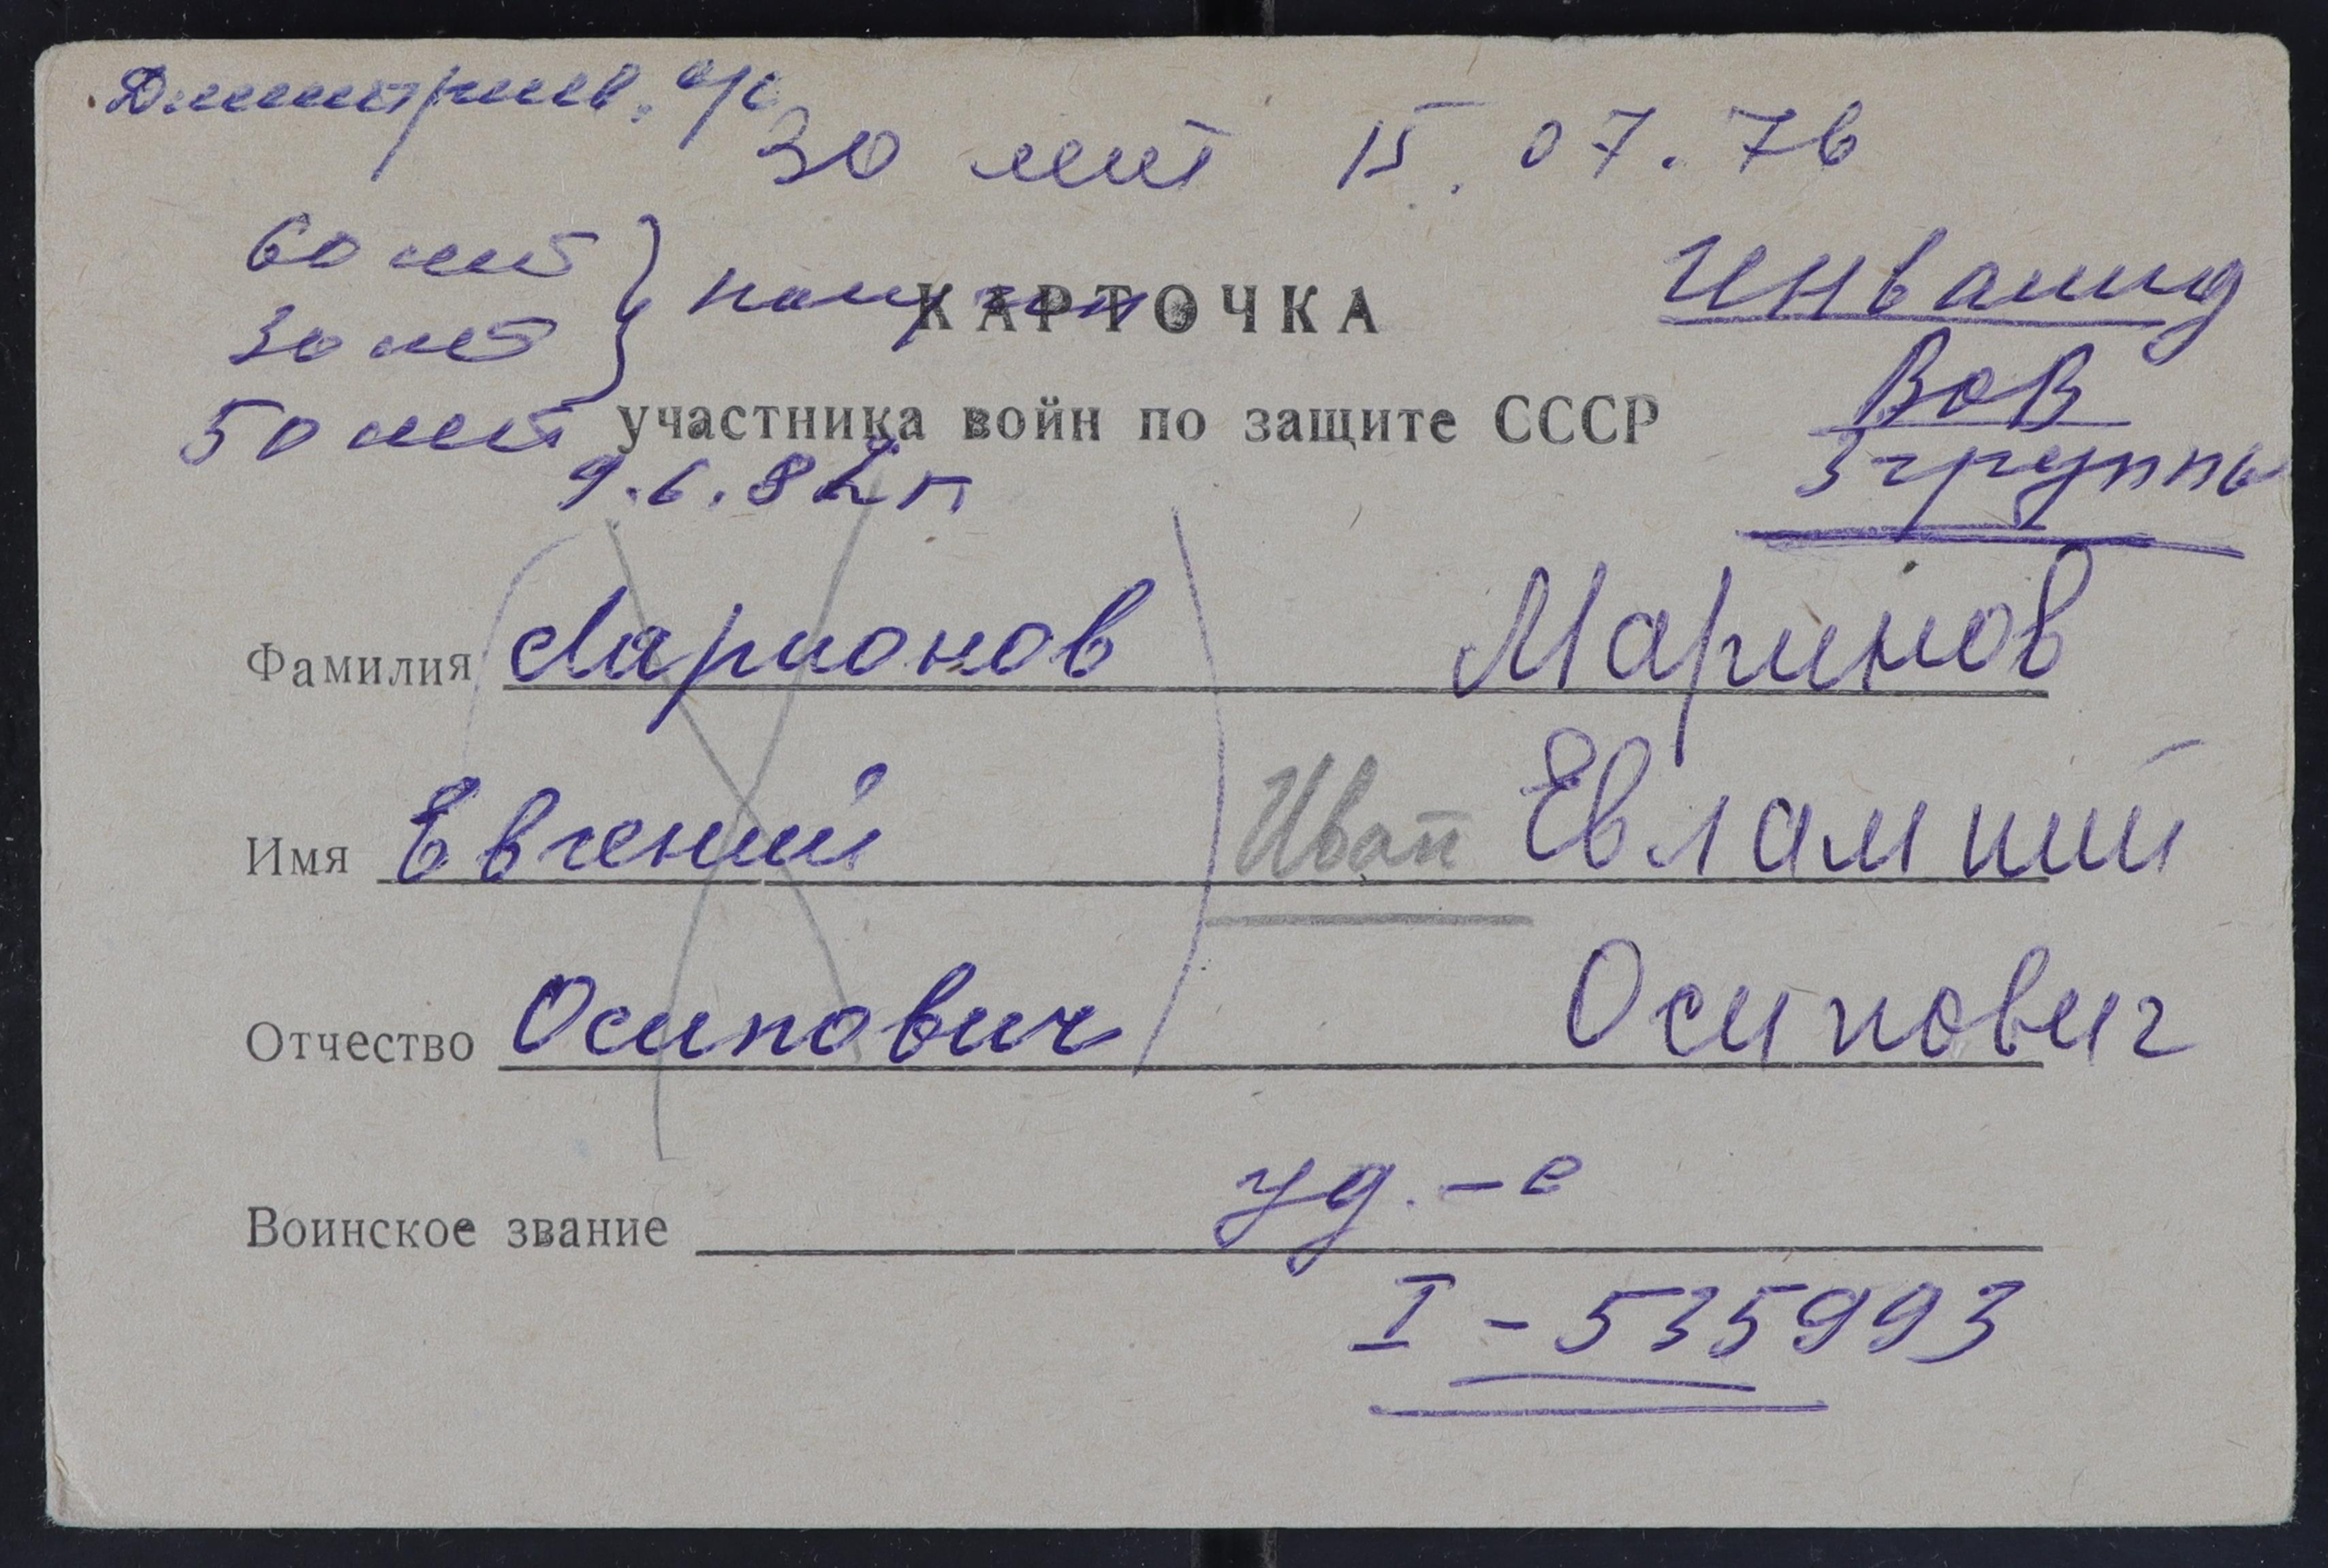 Дмитриев. с/с
30 лет 15.07.76
60 лет
30 лет
50 лет
получен
КАРТОЧКА
Инвалид
ВОВ
3 группы
участника войн по защите СССР
9.6.82 г
Фамилия Ларионов Маринов
Имя Евгений Иван Евлампий
Отчество Осипович Осипович
Воинское звание уд.-е
I - 535993